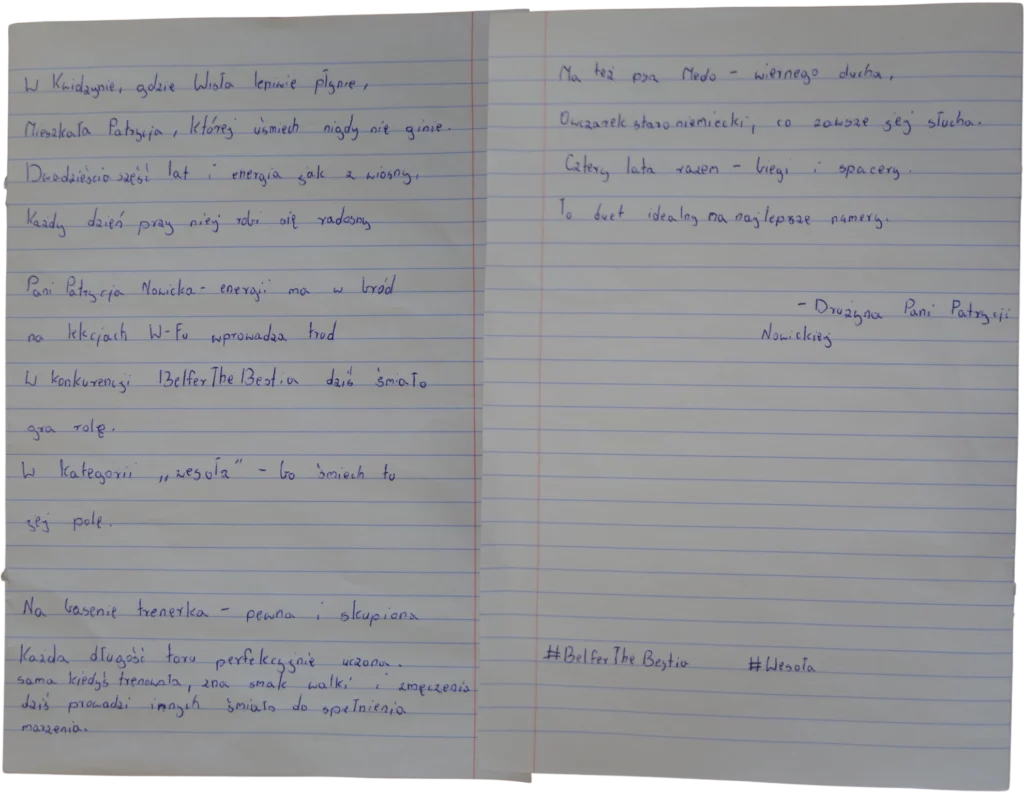 W Kwidzynie, gdzie Wisła leniwie płynie,
Mieszkała Patrycja, której uśmiech nigdy nie ginie.
Dwadzieścia sześć lat i energia jak z wiosny,
Każdy dzień przy niej robi się radosny
Pani Patrycja Nowicka - energii ma w bród
na lekcjach W-Fu wprowadza trud
W konkurencji BelferTheBestia dziś śmiało
gra rolę.
W kategorii „wesoła" - bo śmiech to
jej polę.
Na basenie trenerka - pewna i skupiona
Każda długość toru perfekcyjnie uczona.
sama kiedyś trenowała, zna smak walki i zmęczenia
dziś prowadzi innych śmiało do spełnienia
marzenia.
Ma też psa Medo - wiernego ducha,
Owczarek staroniemiecki, co zawsze jej słucha.
Cztery lata razem - biegi i spacery.
To duet idealny na najlepsze numery.
- Drużyna Pani Patrycji
Nowickiej
#BelferTheBestia #Wesoła